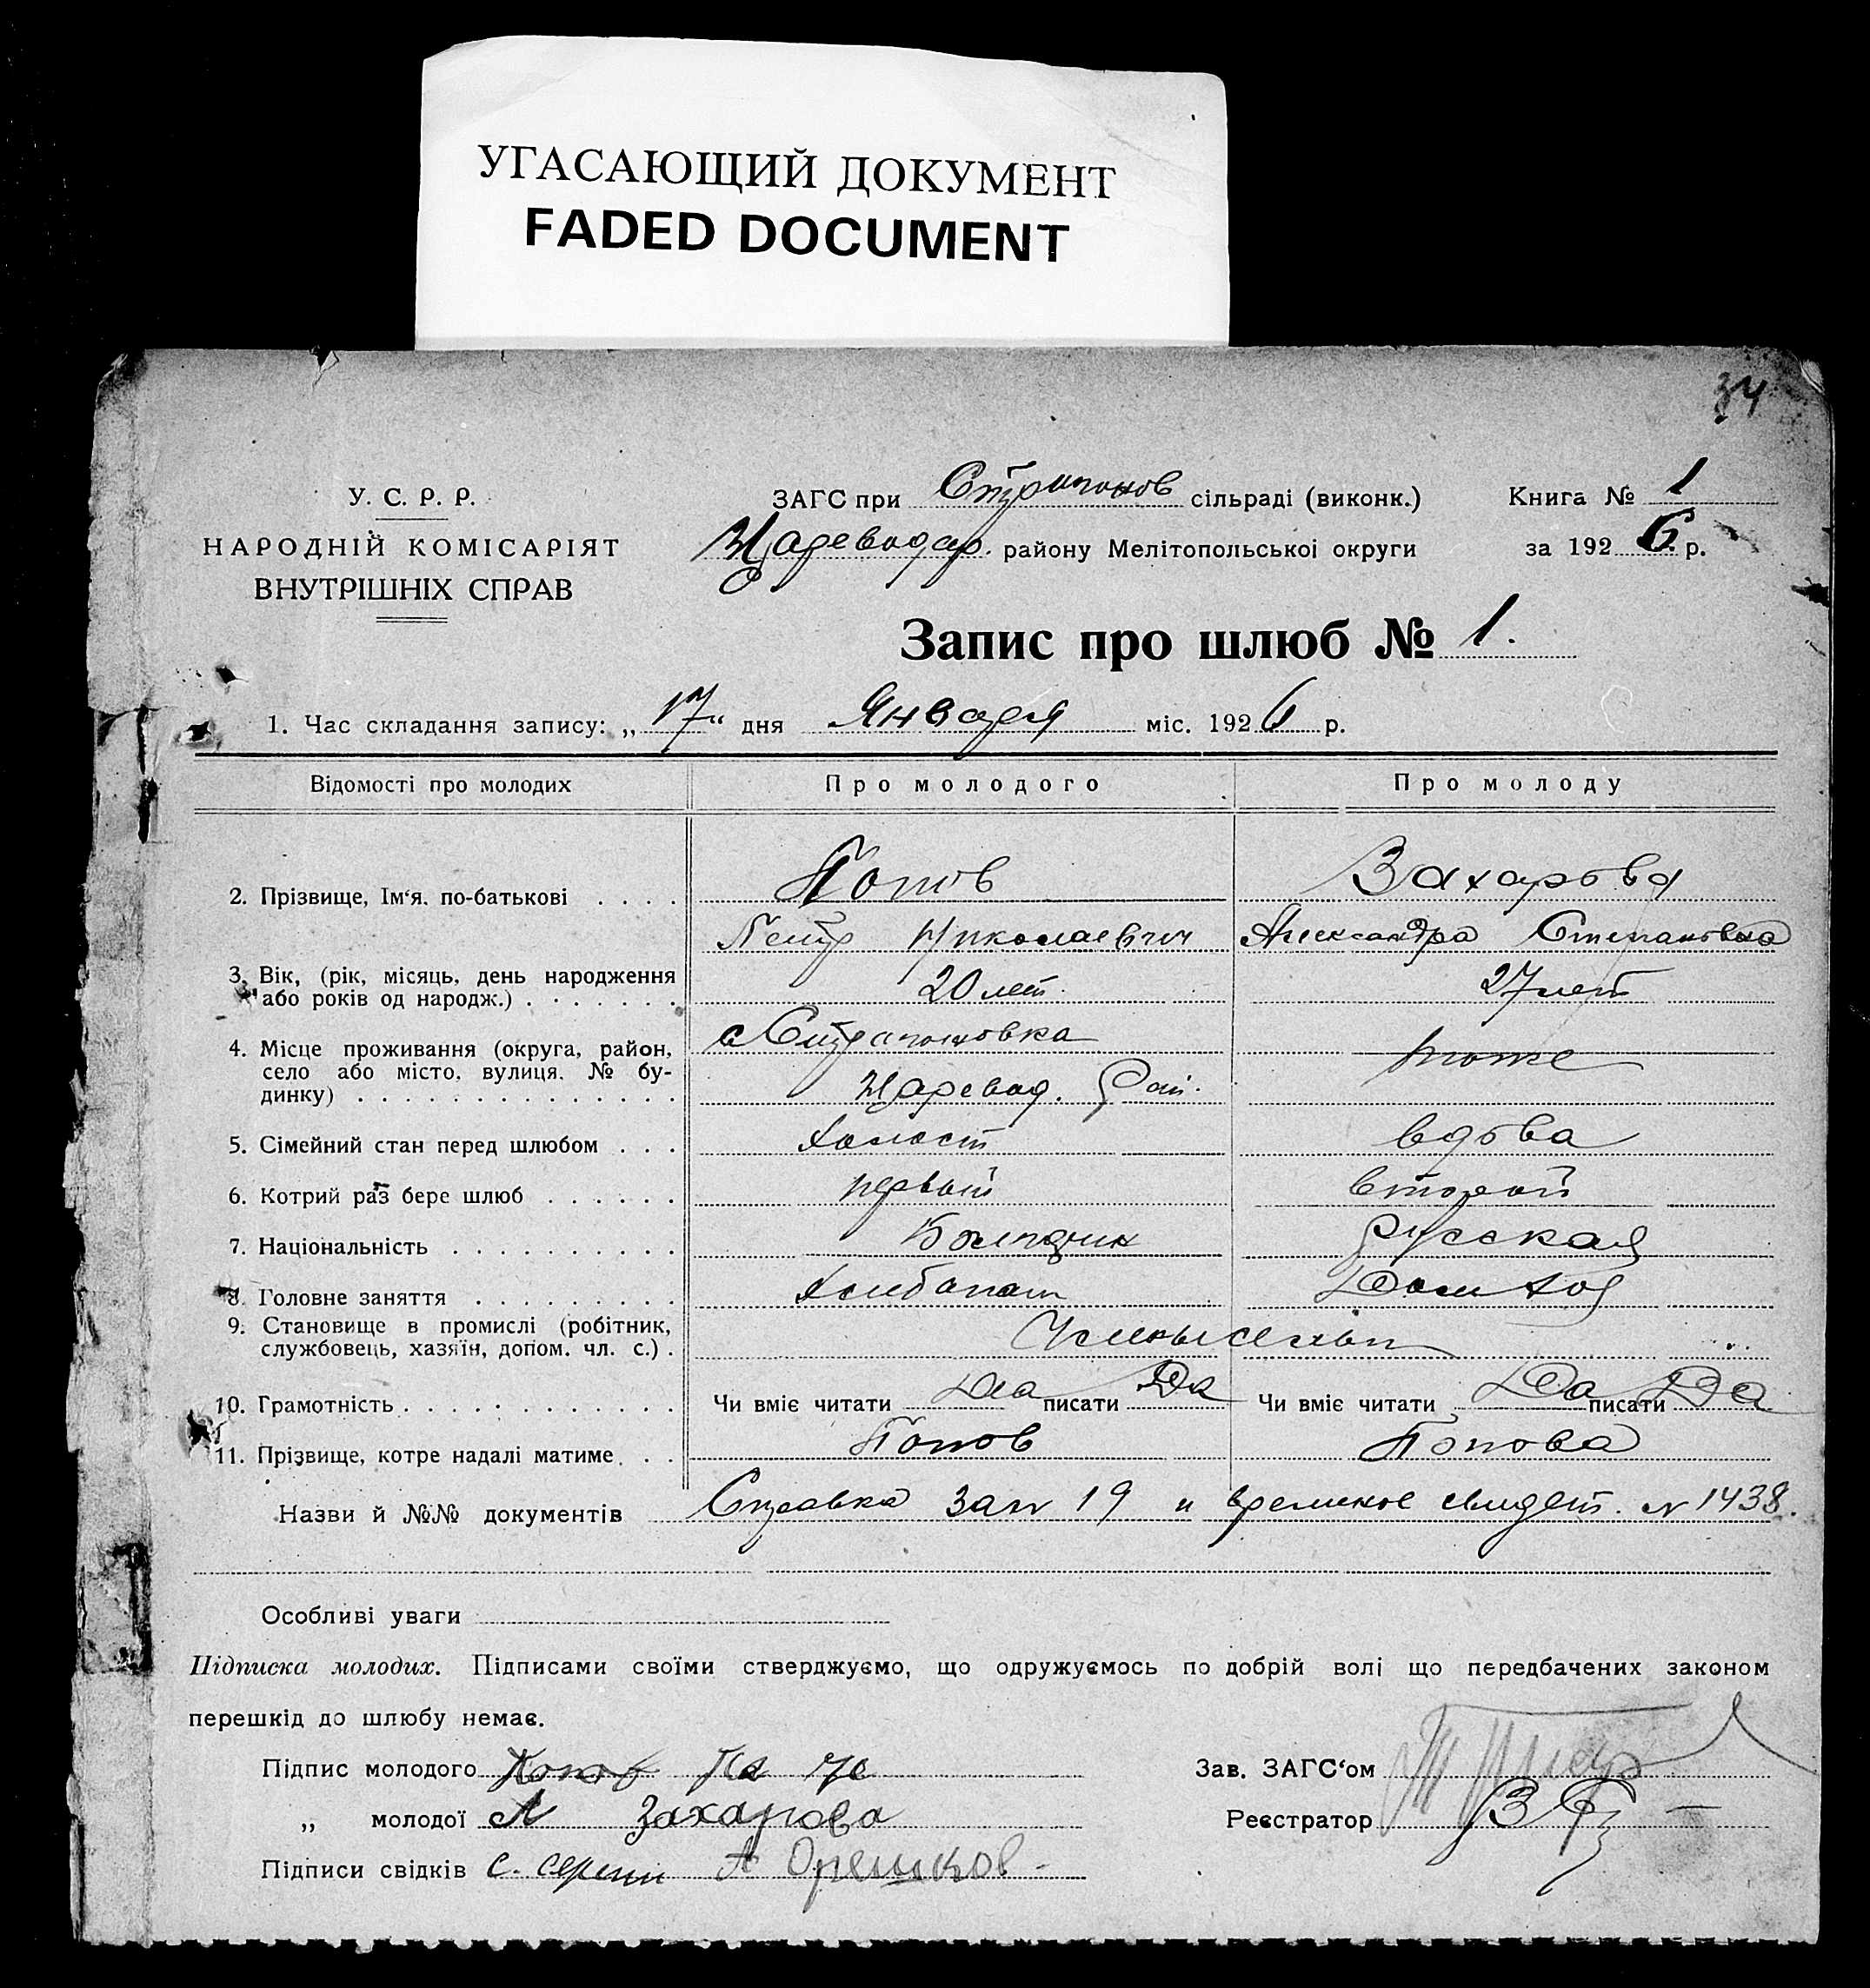 УГАСАЮЩИЙ ДОКУМЕНТ
FADED DOCUMENT
34
У. С. Р. Р.
НАРОДНІЙ КОМІСАРІЯТ
ВНУТРІШНІХ СПРАВ
ЗАГС при сільраді (виконк.)
Цареводар. району Мелітопольської округи
Книга № 1
за 1926 р.
Запис про шлюб № 1.
1. Час складання запису: „17“ дня Января міс. 1926 р.
Відомості про молодих Про молодого Про молоду
2. Прізвище, Ім‘я, по-батькові . . . . Попов Захарова
Петр Николаевич Александра Степановна
3. Вік, (рік, місяць, день народження або років од народж.) . . . . . . . 20 лет. 27 лет
4. Місце проживання (округа, район, село або місто, вулиця, № будинку) . . . . . . . . . . . . . . тоже
Царевод. Рай.
5. Сімейний стан перед шлюбом . . . Холост вдова
6. Котрий раз бере шлюб . . . . . . первый второй
7. Національність . . . . . . . . . . Болгарин Русская
8. Головне заняття . . . . . . . . . Хлебопаш Дом хоз
9. Становище в промислі (робітник, службовець, хазяїн, допом. чл. с.) . Члены семьи
10. Грамотність . . . . . . . . . . . . Чи вміє читати Да писати Да Чи вміє читати Да писати Да
11. Прізвище, котре надалі матиме . . . Попов Попова
Назви й №№ документів Справка за № 19 и временое свидет. № 1438.
Особливі уваги
Підписка молодих. Підписами своїми стверджуємо, що одружуємось по добрій волі що передбачених законом
перешкід до шлюбу немає.
Підпис молодого Попов
„ молодої А Захарова
Підписи свідків А Орешков
Зав. ЗАГС‘ом
Реєстратор